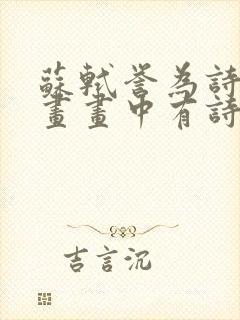 蘇軾誉為詩
畫畫中有詩
吉言沉